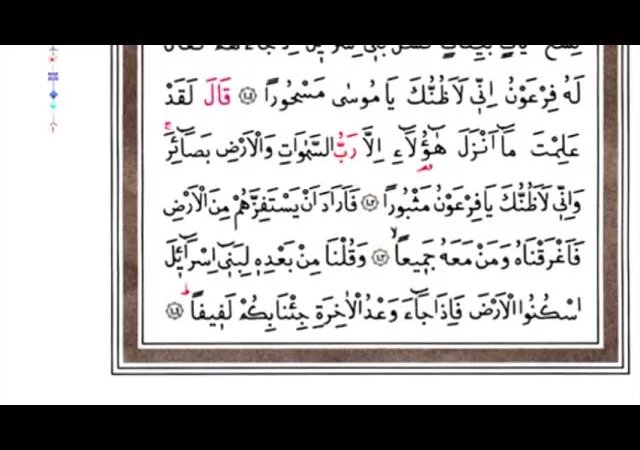 تِسْعَ اٰيَاتٍ بَيِّنَاتٍ فَسْـَٔلْ بَن۪ٓي اِسْرَٓائ۪لَ اِذْ جَٓاءَهُمْ فَقَالَ
لَهُ فِرْعَوْنُ اِنّ۪ي لَاَظُنُّكَ يَا مُوسٰى مَسْحُورًا ﴿١٠١﴾ قَالَ لَقَدْ
عَلِمْتَ مَٓا اَنْزَلَ هٰٓؤُ۬لَٓاءِ اِلَّا رَبُّ السَّمٰوَاتِ وَالْاَرْضِ بَصَٓائِرَۚ
وَاِنّ۪ي لَاَظُنُّكَ يَا فِرْعَوْنُ مَثْبُورًا ﴿١٠٢﴾ فَاَرَادَ اَنْ يَسْتَفِزَّهُمْ مِنَ الْاَرْضِ
فَاَغْرَقْنَاهُ وَمَنْ مَعَهُ جَم۪يعًاۙ ﴿١٠٣﴾ وَقُلْنَا مِنْ بَعْدِه۪ لِبَن۪ٓي اِسْرَٓائ۪لَ
اسْكُنُوا الْاَرْضَ فَاِذَا جَٓاءَ وَعْدُ الْاٰخِرَةِ جِئْنَا بِكُمْ لَف۪يفًاۜ ﴿١٠٤﴾